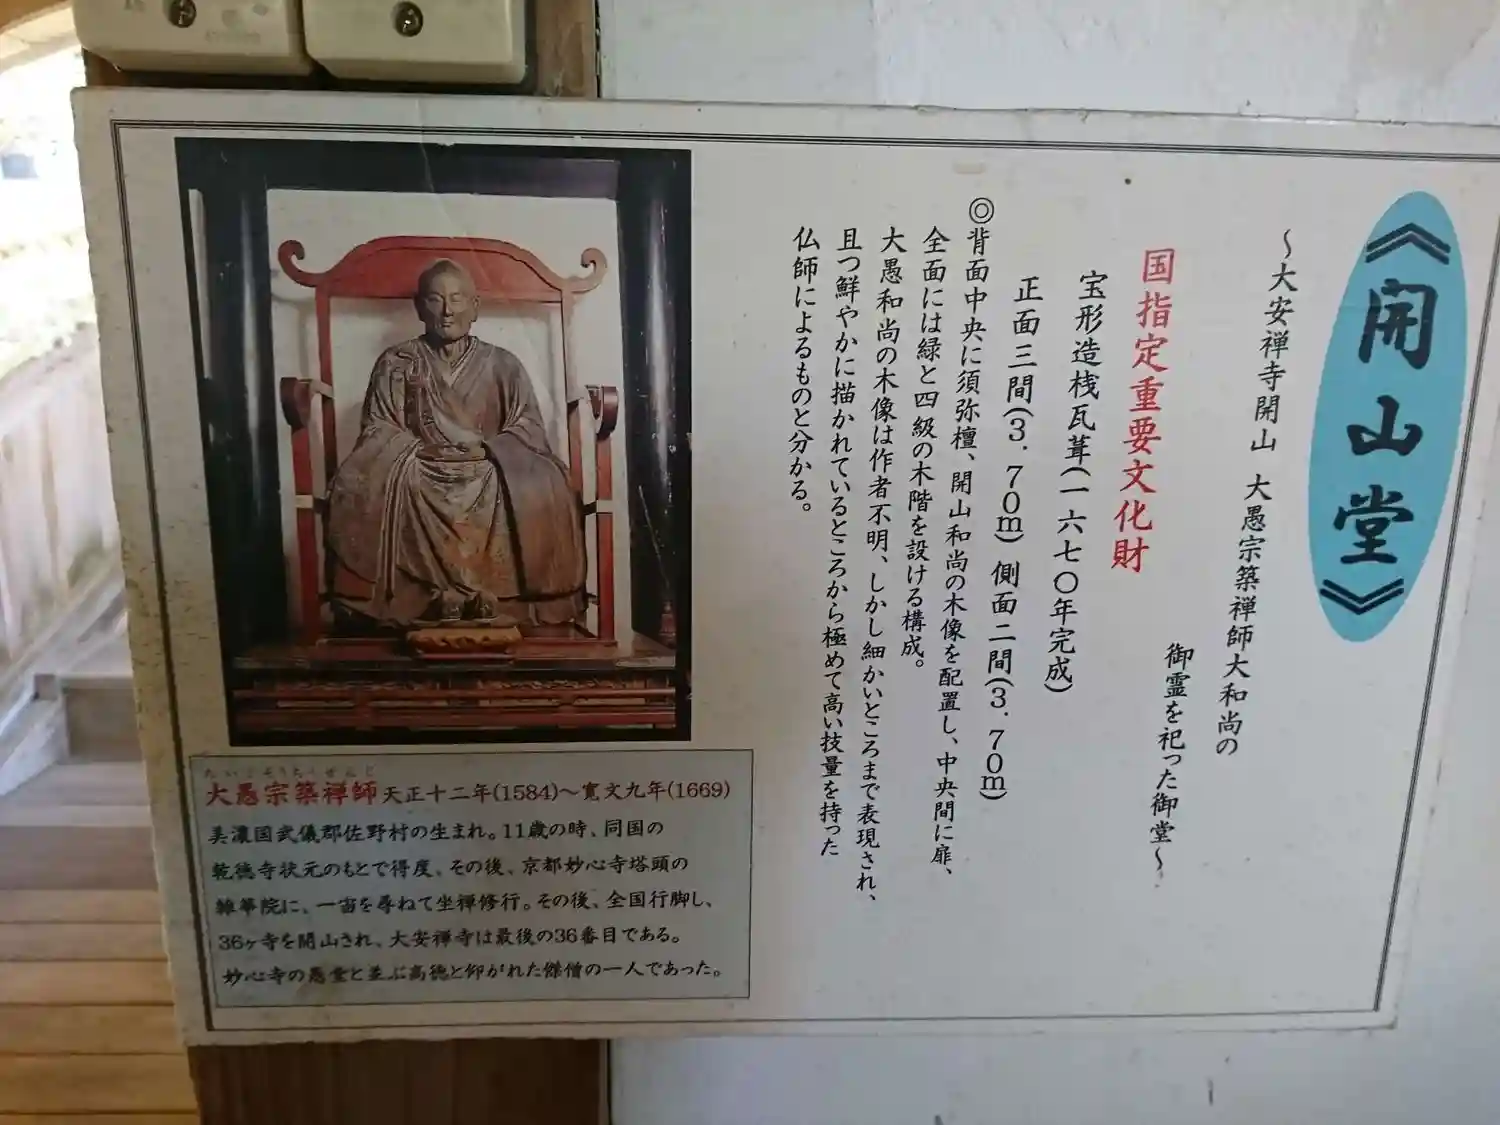 《開山堂》
～大安禅寺開山 大愚宗築禅師大和尚の
御霊を祀った御堂～
国指定重要文化財
宝形造桟瓦葺(一六七〇年完成)
正面三間(3.70m)側面二間(3.70m)
◎背面中央に須弥壇、開山和尚の木像を配置し、中央間に扉、
全面には緑と四級の木階を設ける構成。
大愚和尚の木像は作者不明、しかし細かいところまで表現され、
且つ鮮やかに描かれているところから極めて高い技量を持った
仏師によるものと分かる。
たいぐそうちくぜんじ
大愚宗築禅師 天正十二年(1584)～寛文九年(1669)
美濃国武儀郡佐野村の生まれ。11歳の時、同国の
乾徳寺状元のもとで得度。その後、京都妙心寺塔頭の
雑華院に、一宙を尋ねて坐禅修行。その後、全国行脚し、
36ヶ寺を開山され、大安禅寺は最後の36番目である。
妙心寺の愚堂と並ぶ高徳と仰がれた傑僧の一人であった。